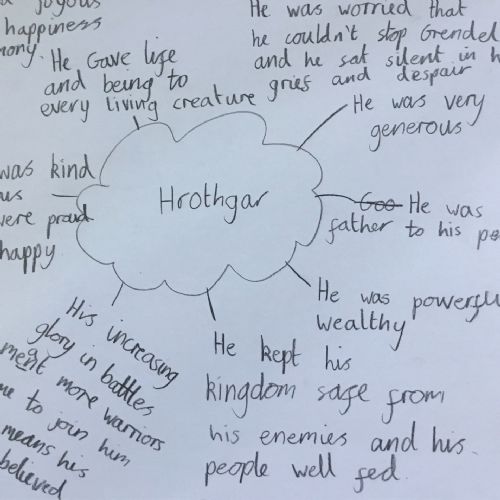 joyous
happiness
mony.
He Gave life
and being to
every living creature
He was worried that
he couldn't stop Grendel
and he sat silent in h
grief and despair
He was very
generous
Hrothgar
was kind
us
vere proud
happy
Goo He was
father to his pe
He was powerfu
wealthy
He kept his
kingdom safe from
his enemies and his
people well fed.
His increasing
glory in battles
meant more warriors
me to join him
means his
believed